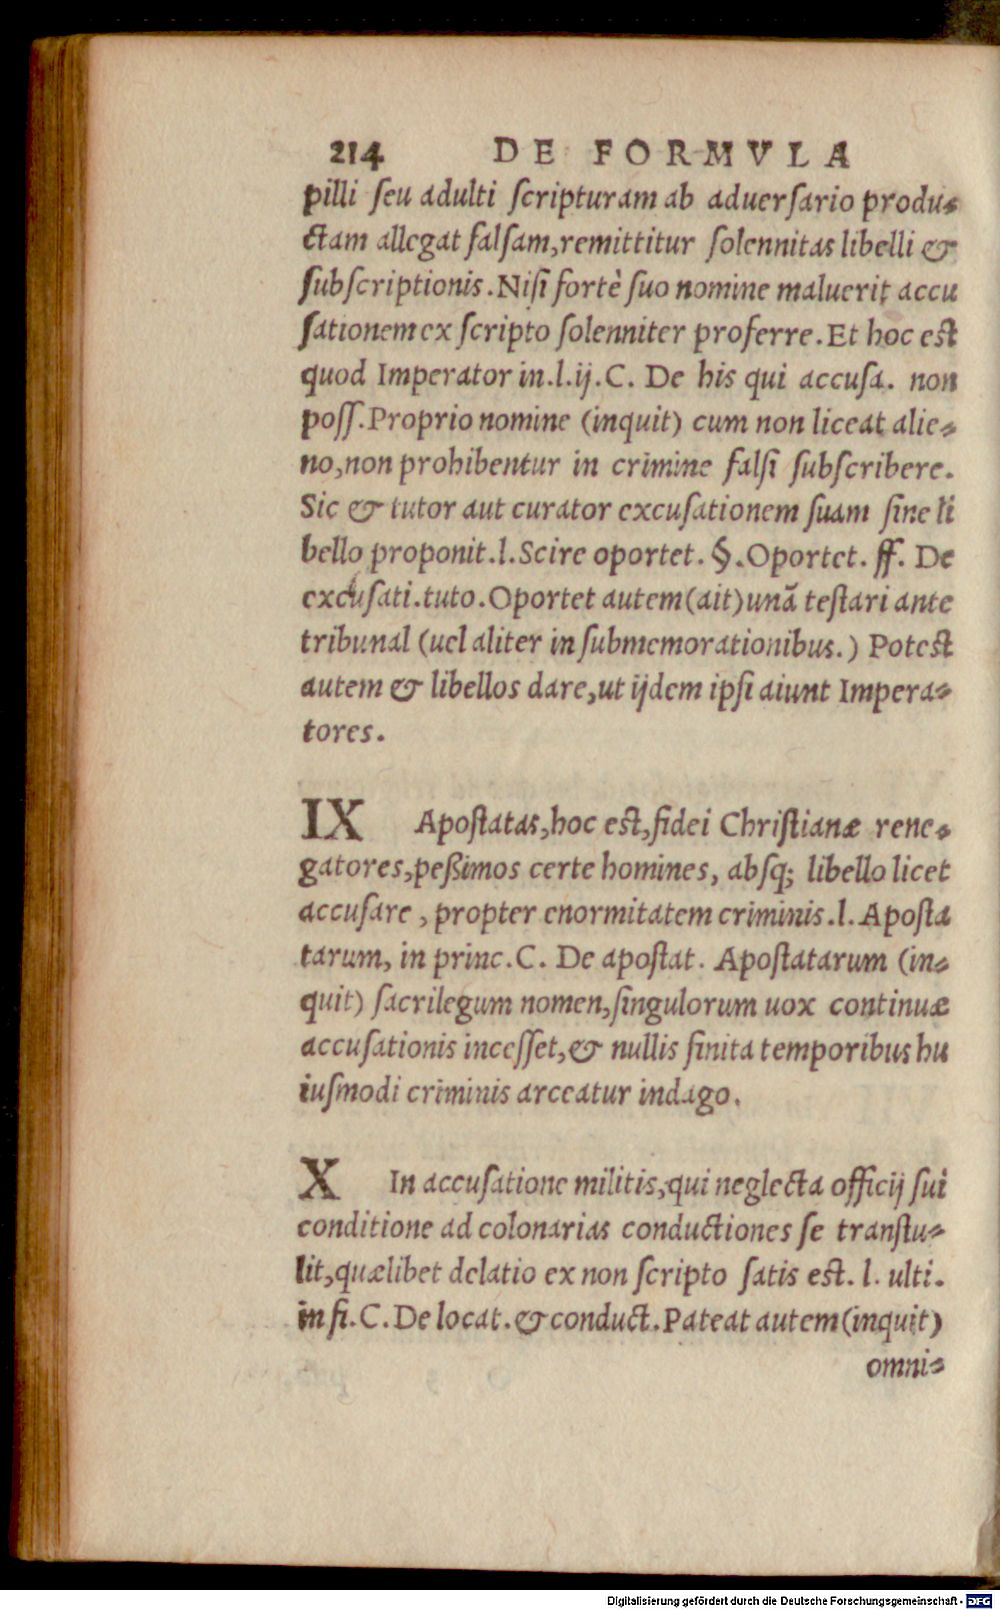 214 DE FORMVLA
pilli ſeu adulti ſcripturam ab aduerſario produ-
ctam allegat falſam,remittitur ſolennitas libelli &
ſubſcriptionis.Niſi fortè ſuo nomine maluerit accu
ſationem ex ſcripto ſolenniter proferre.Et hoc est
quod Imperator in.l.ij.C. De his qui accuſa. non
poſſ.Proprio nomine (inquit) cum non liceat alie-
no,non prohibentur in crimine falſi ſubſcribere.
Sic & tutor aut curator excuſationem ſuam ſine li
bello proponit.l.Scire oportet. §.Oportet. ff. De
excuſati.tuto.Oportet autem(ait)unã teſtari ante
tribunal (uel aliter in ſubmemorationibus.) Potest
autem & libellos dare,ut ijdem ipſi aiunt Impera-
tores.
IX Apoſtatas,hoc est,fidei Chriſtianæ rene-
gatores,peßimos certe homines, abſq; libello licet
accuſare , propter enormitatem criminis.l. Apoſta
tarum, in princ.C. De apoſtat. Apoſtatarum (in-
quit) ſacrilegum nomen,ſingulorum uox continuæ
accuſationis inceſſet,& nullis finita temporibus hu
iuſmodi criminis arceatur indago.
X In accuſatione militis,qui neglecta officij ſui
conditione ad colonarias conductiones ſe tranſtu-
lit,quælibet delatio ex non ſcripto ſatis est. l. ulti.
in fi.C.De locat.& conduct.Pateat autem(inquit)
omni-
Digitalisierung gefördert durch die Deutsche Forschungsgemeinschaft - DFG